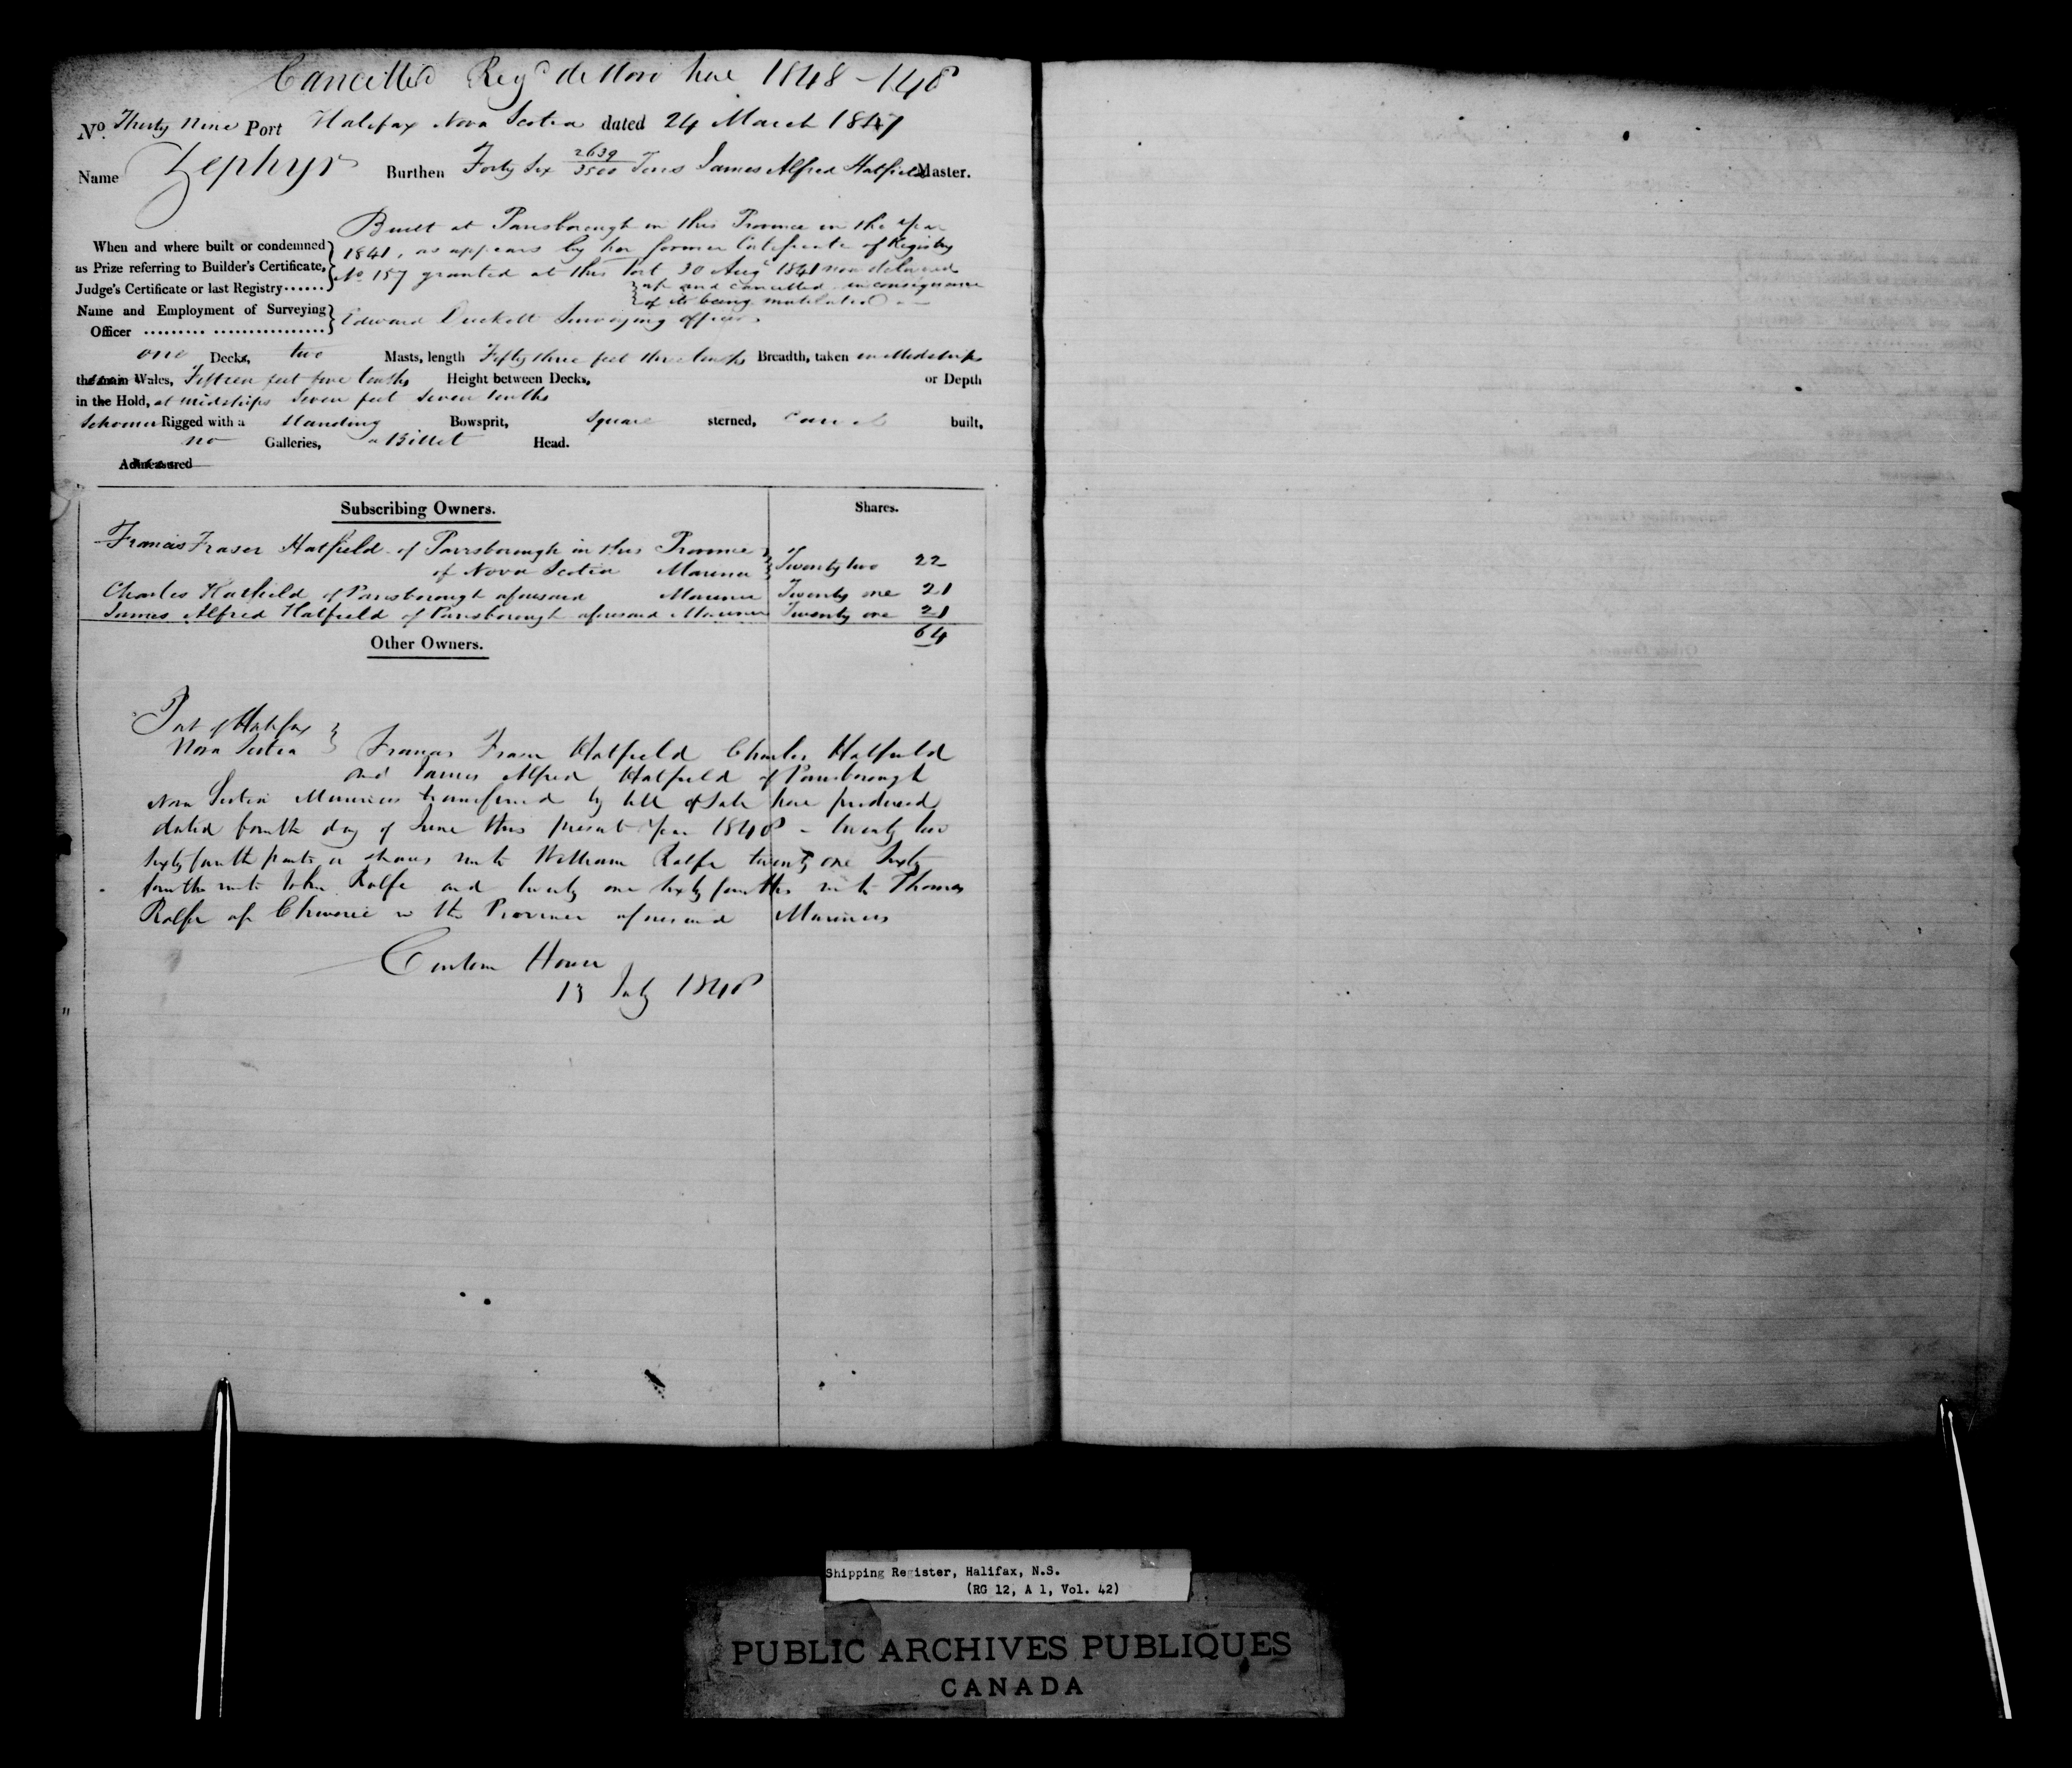 Cancelled Regd de Novo here 1848 - 148
No. Thirty Nine Port Halifax Nova Scotia dated 24 March 1847
Name Zephyr Burthen Forty Six 2639/3500 Tons James Alfred Hatfield Master.
Built at Parrsborough in this Province in the Year
When and where built or condemned 1841, as appears by her former Certificate of Registry
as Prize referring to Builder's Certificate, No 157 granted at this Port 30 Augt 1841 now delivered
Judge's Certificate or last Registry...... up and cancelled in consequence
of its being mutilated
Name and Employment of Surveying
Officer ......... ................ Edward Duckett Surveying officer
one Decks, two Masts, length Fifty three feet three tenths Breadth, taken in Midships
the main Wales, Fifteen feet five tenths Height between Decks, or Depth
in the Hold, at Midships Seven feet Seven tenths
Schooner Rigged with a Standing Bowsprit, Square sterned, Carvel built,
no Galleries, a Billet Head.
Admeasured
Subscribing Owners. Shares.
Francis Fraser Hatfield of Parrsborough in this Province
of Nova Scotia Mariner Twenty two 22
Charles Hatfield of Parrsborough aforesaid Mariner Twenty one 21
James Alfred Hatfield of Parrsborough aforesaid Mariner Twenty one 21
64
Other Owners.
Port of Halifax
Nova Scotia Francis Fraser Hatfield Charles Hatfield
and James Alfred Hatfield of Parrsborough
Nova Scotia Mariners transferred by bill of Sale here produced
dated fourth day of June this present Year 1848 - twenty two
Sixty fourth parts or shares unto William Rolfe twenty one Sixty
fourths unto John Rolfe and twenty one Sixty fourths unto Thomas
Rolfe of Cheverie in the Province aforesaid Mariners
Custom House
13 July 1848
Shipping Register, Halifax, N.S.
(RG 12, A 1, Vol. 42)
PUBLIC ARCHIVES PUBLIQUES
CANADA